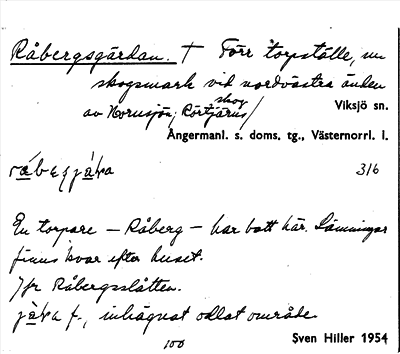 Råbergsgärdan. † Förr torpställe, nu
skogsmark vid nordvästra änden
av Hornsjön, Rörtjärns/
skog
Viksjö sn.
Ångermanl. s. doms. tg., Västernorrl. l.
316
En torpare – Råberg – har bott här. Lämningar
finns kvar efter huset.
Jfr Råbergsslåtten.
f., inhägnat odlat område.
100
Sven Hiller 1954